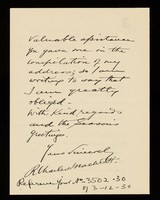 Valuable assistance
you gave me in the
compilation of my
address; so I am
writing to say that
I am greatly
obliged.
With kind regards
and the Season's
greetings,
Yours sincerely
R Charles
Reference Your No. 3502-30
3-12-30